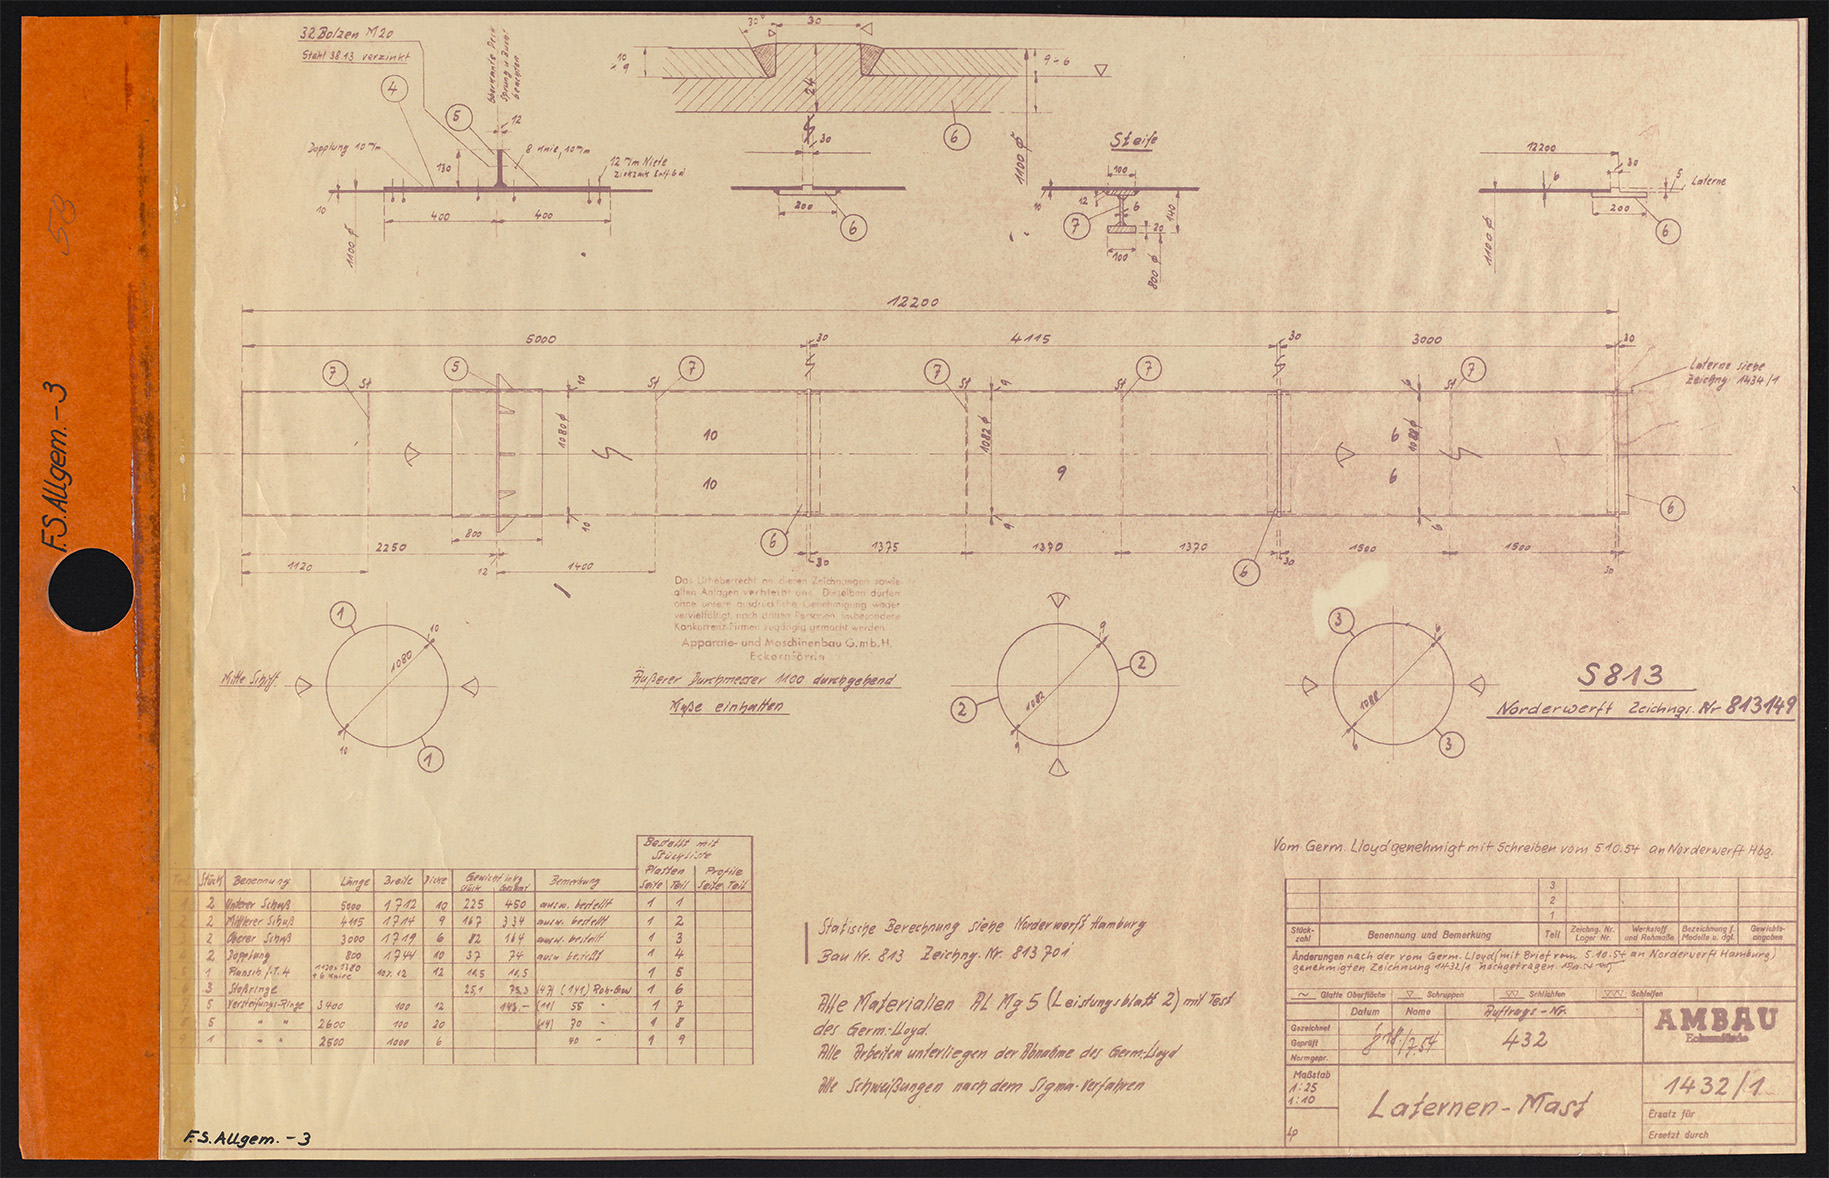 32 Bolzen M20
Stahl 38.13 verzinkt
4
5
Oberkante Deck
Sprung u. Bucht
beachten
12
Dopplung 10 m/m
130
8 Knie, 10 m/m
12 m/m Niete
10
400
400
1100 ϕ
30°
30
10
9
24
9-6
6
1100 ϕ
30
200
6
Steife
100
12
6
10
7
140
20
100
800 ϕ
12200
30
6
5
Laterne
200
6
1100 ϕ
12200
5000
30
4115
30
3000
30
7
St
5
10
St
7
7
St
9
St
7
6
St
7
Laterne siehe
Zeichng. 1434/1
1080 ϕ
10
10
1082 ϕ
9
6
6
1088 ϕ
10
9
6
6
6
6
800
2250
12
1120
1400
30
1375
1370
1370
30
1500
1500
30
Das Urheberrecht an diesen Zeichnungen sowie
allen Anlagen verbleibt uns. Dieselben dürfen
ohne unsere ausdrückliche Genehmigung weder
vervielfältigt, noch dritten Personen, insbesondere
Konkurrenz-Firmen zugängig gemacht werden.
Apparate- und Maschinenbau G.m.b.H.
Eckernförde
1
10
1080
10
1
Mitte Schiff
Äußerer Durchmesser 1100 durchgehend
Maße einhalten
2
9
1082
9
2
3
6
1088
6
3
S813
Norderwerft Zeichngs. Nr 813149
Bestellt mit
Stückliste
Platten Profile
Seite Teil Seite Teil
Stück Benennung Länge Breite Dicke Gewicht in kg Stück Gesamt Bemerkung
2 Unterer Schuß 5000 1712 10 225 450 ausw. bestellt 1 1
2 Mittlerer Schuß 4115 1714 9 167 334 ausw. bestellt 1 2
2 Oberer Schuß 3000 1719 6 82 164 ausw. bestellt 1 3
2 Dopplung 800 1744 10 37 74 ausw. bestellt 1 4
1 Flansch f. T. 4 12 11,5 11,5 1 5
3 Stoßringe 25,1 75,3 (47) (141) 1 6
5 Versteifungs-Ringe 3400 100 12 143,- (11) 55 " 1 7
5 " " 2600 100 20 (14) 70 " 1 8
1 " " 2500 1000 6 40 " 1 9
Statische Berechnung siehe Norderwerft Hamburg
Bau Nr. 813 Zeichng. Nr. 813701
Alle Materialien AL Mg 5 (Leistungsblatt 2) mit Test
des Germ.-Lloyd.
Alle Arbeiten unterliegen der Abnahme des Germ.-Lloyd
Alle Schweißungen nach dem Sigma-Verfahren
Vom Germ. Lloyd genehmigt mit Schreiben vom 5.10.54 an Norderwerft Hbg.
3
2
1
Stück-zahl Benennung und Bemerkung Teil Zeichng. Nr. Lager Nr. Werkstoff und Rohmaße Bezeichnung f. Modelle u. dgl. Gewichts-angaben
Änderungen nach der vom Germ. Lloyd (mit Brief vom 5.10.54 an Norderwerft Hamburg)
genehmigten Zeichnung 1432/1 nachgetragen
Glatte Oberfläche Schruppen Schlichten Schleifen
Datum Name Auftrags-Nr.
Gezeichnet
Geprüft 432
Normgepr.
AMBAU
Eckernförde
Maßstab
1:25
1:10
Laternen-Mast
1432/1
Ersatz für
Ersetzt durch
F.S.Allgem.-3
58
F.S.Allgem.-3